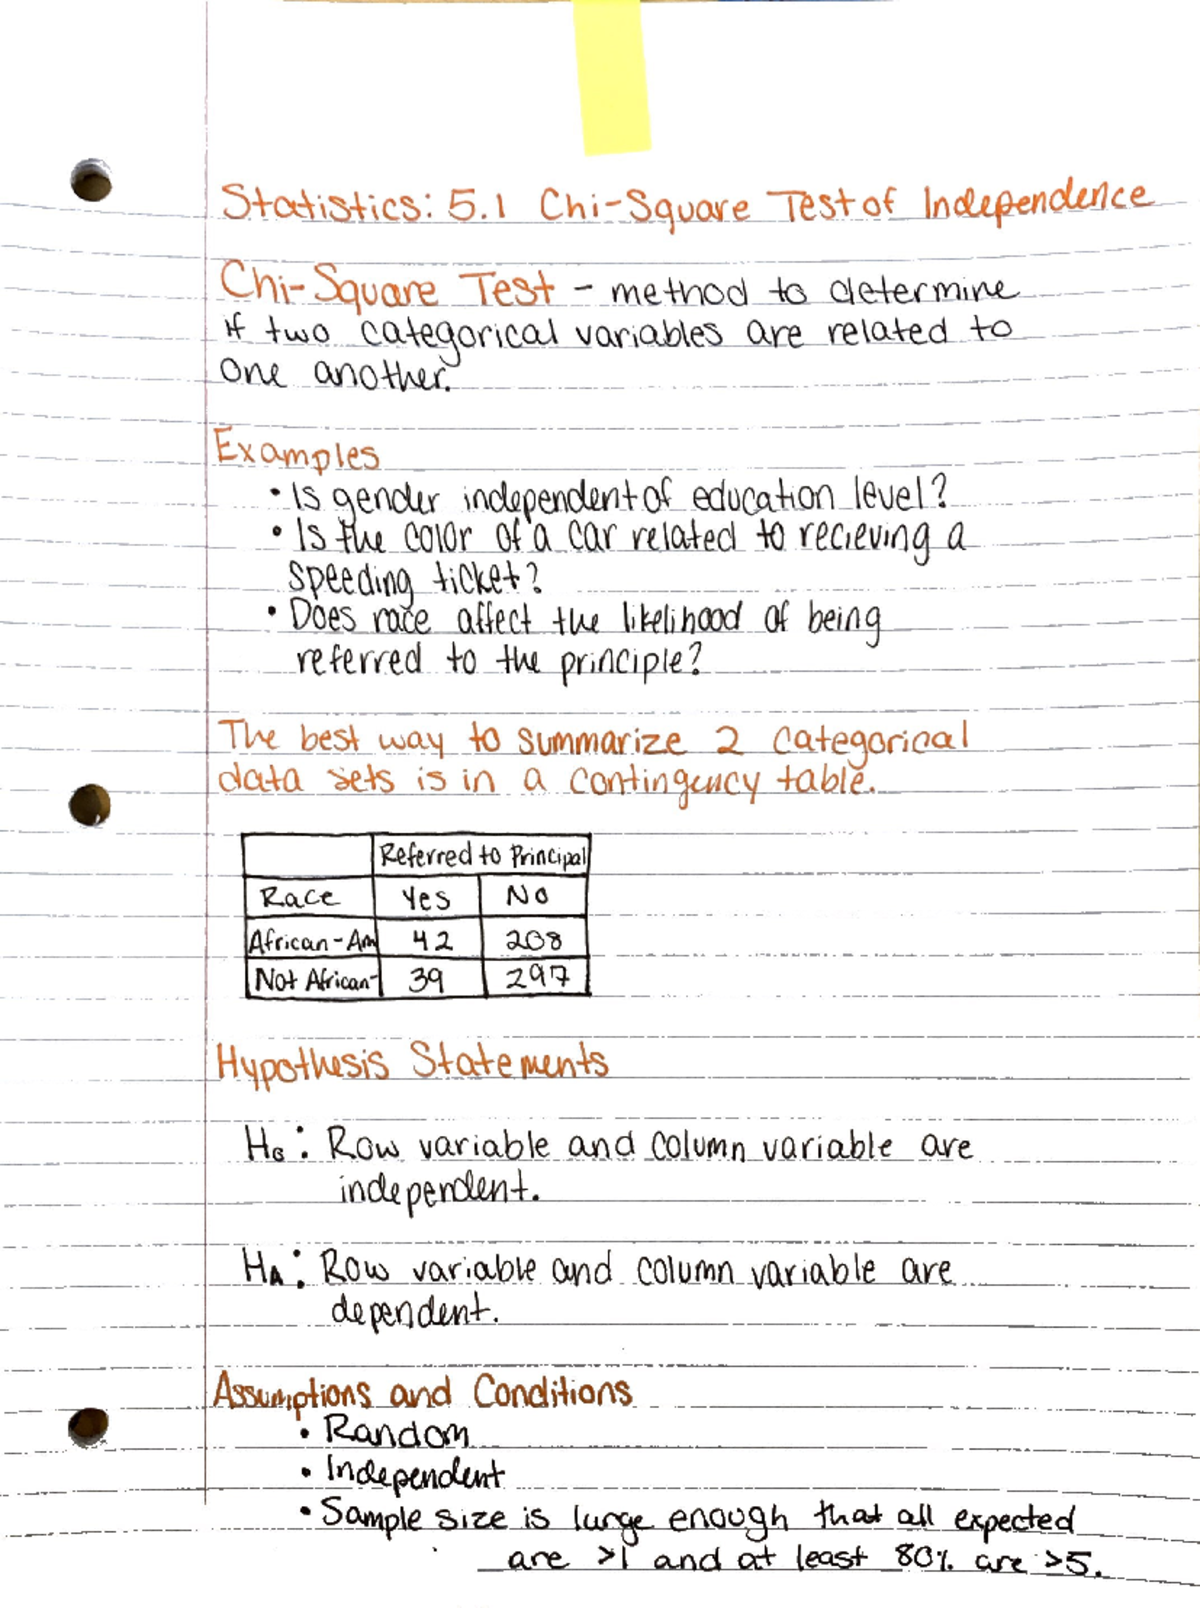 Statistics: 5.1 Chi-Square Test of Independence
Chi-Square Test - method to determine
if two categorical variables are related to
one another.
Examples
• Is gender independent of education level?
• Is the color of a car related to recieving a
speeding ticket?
• Does race affect the likelihood of being
referred to the principle?
The best way to summarize 2 categorical
data sets is in a contingency table.
Referred to Principal
Race Yes No
African-Am 42 208
Not African- 39 297
Hypothesis Statements
H₀: Row variable and column variable are
independent.
HA: Row variable and column variable are
dependent.
Assumptions and Conditions
• Random
• Independent
• Sample size is large enough that all expected
are >1 and at least 80% are >5.